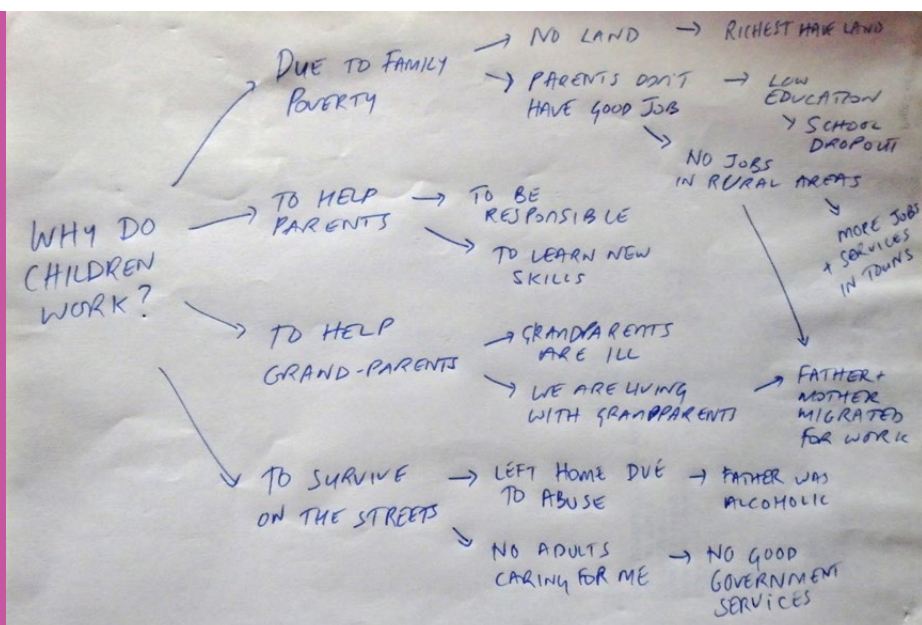 WHY DO
CHILDREN
WORK?
DUE TO FAMILY
POVERTY
NO LAND
RICHEST HAVE LAND
PARENTS DON'T
HAVE GOOD JOB
LOW
EDUCATION
SCHOOL
DROPOUT
NO JOBS
IN RURAL AREAS
MORE JOBS
+ SERVICES
IN TOWNS
TO HELP
PARENTS
TO BE
RESPONSIBLE
TO LEARN NEW
SKILLS
TO HELP
GRAND-PARENTS
GRANDPARENTS
ARE ILL
WE ARE LIVING
WITH GRANDPARENTS
FATHER +
MOTHER
MIGRATED
FOR WORK
TO SURVIVE
ON THE STREETS
LEFT HOME DUE
TO ABUSE
FATHER WAS
ALCOHOLIC
NO ADULTS
CARING FOR ME
NO GOOD
GOVERNMENT
SERVICES